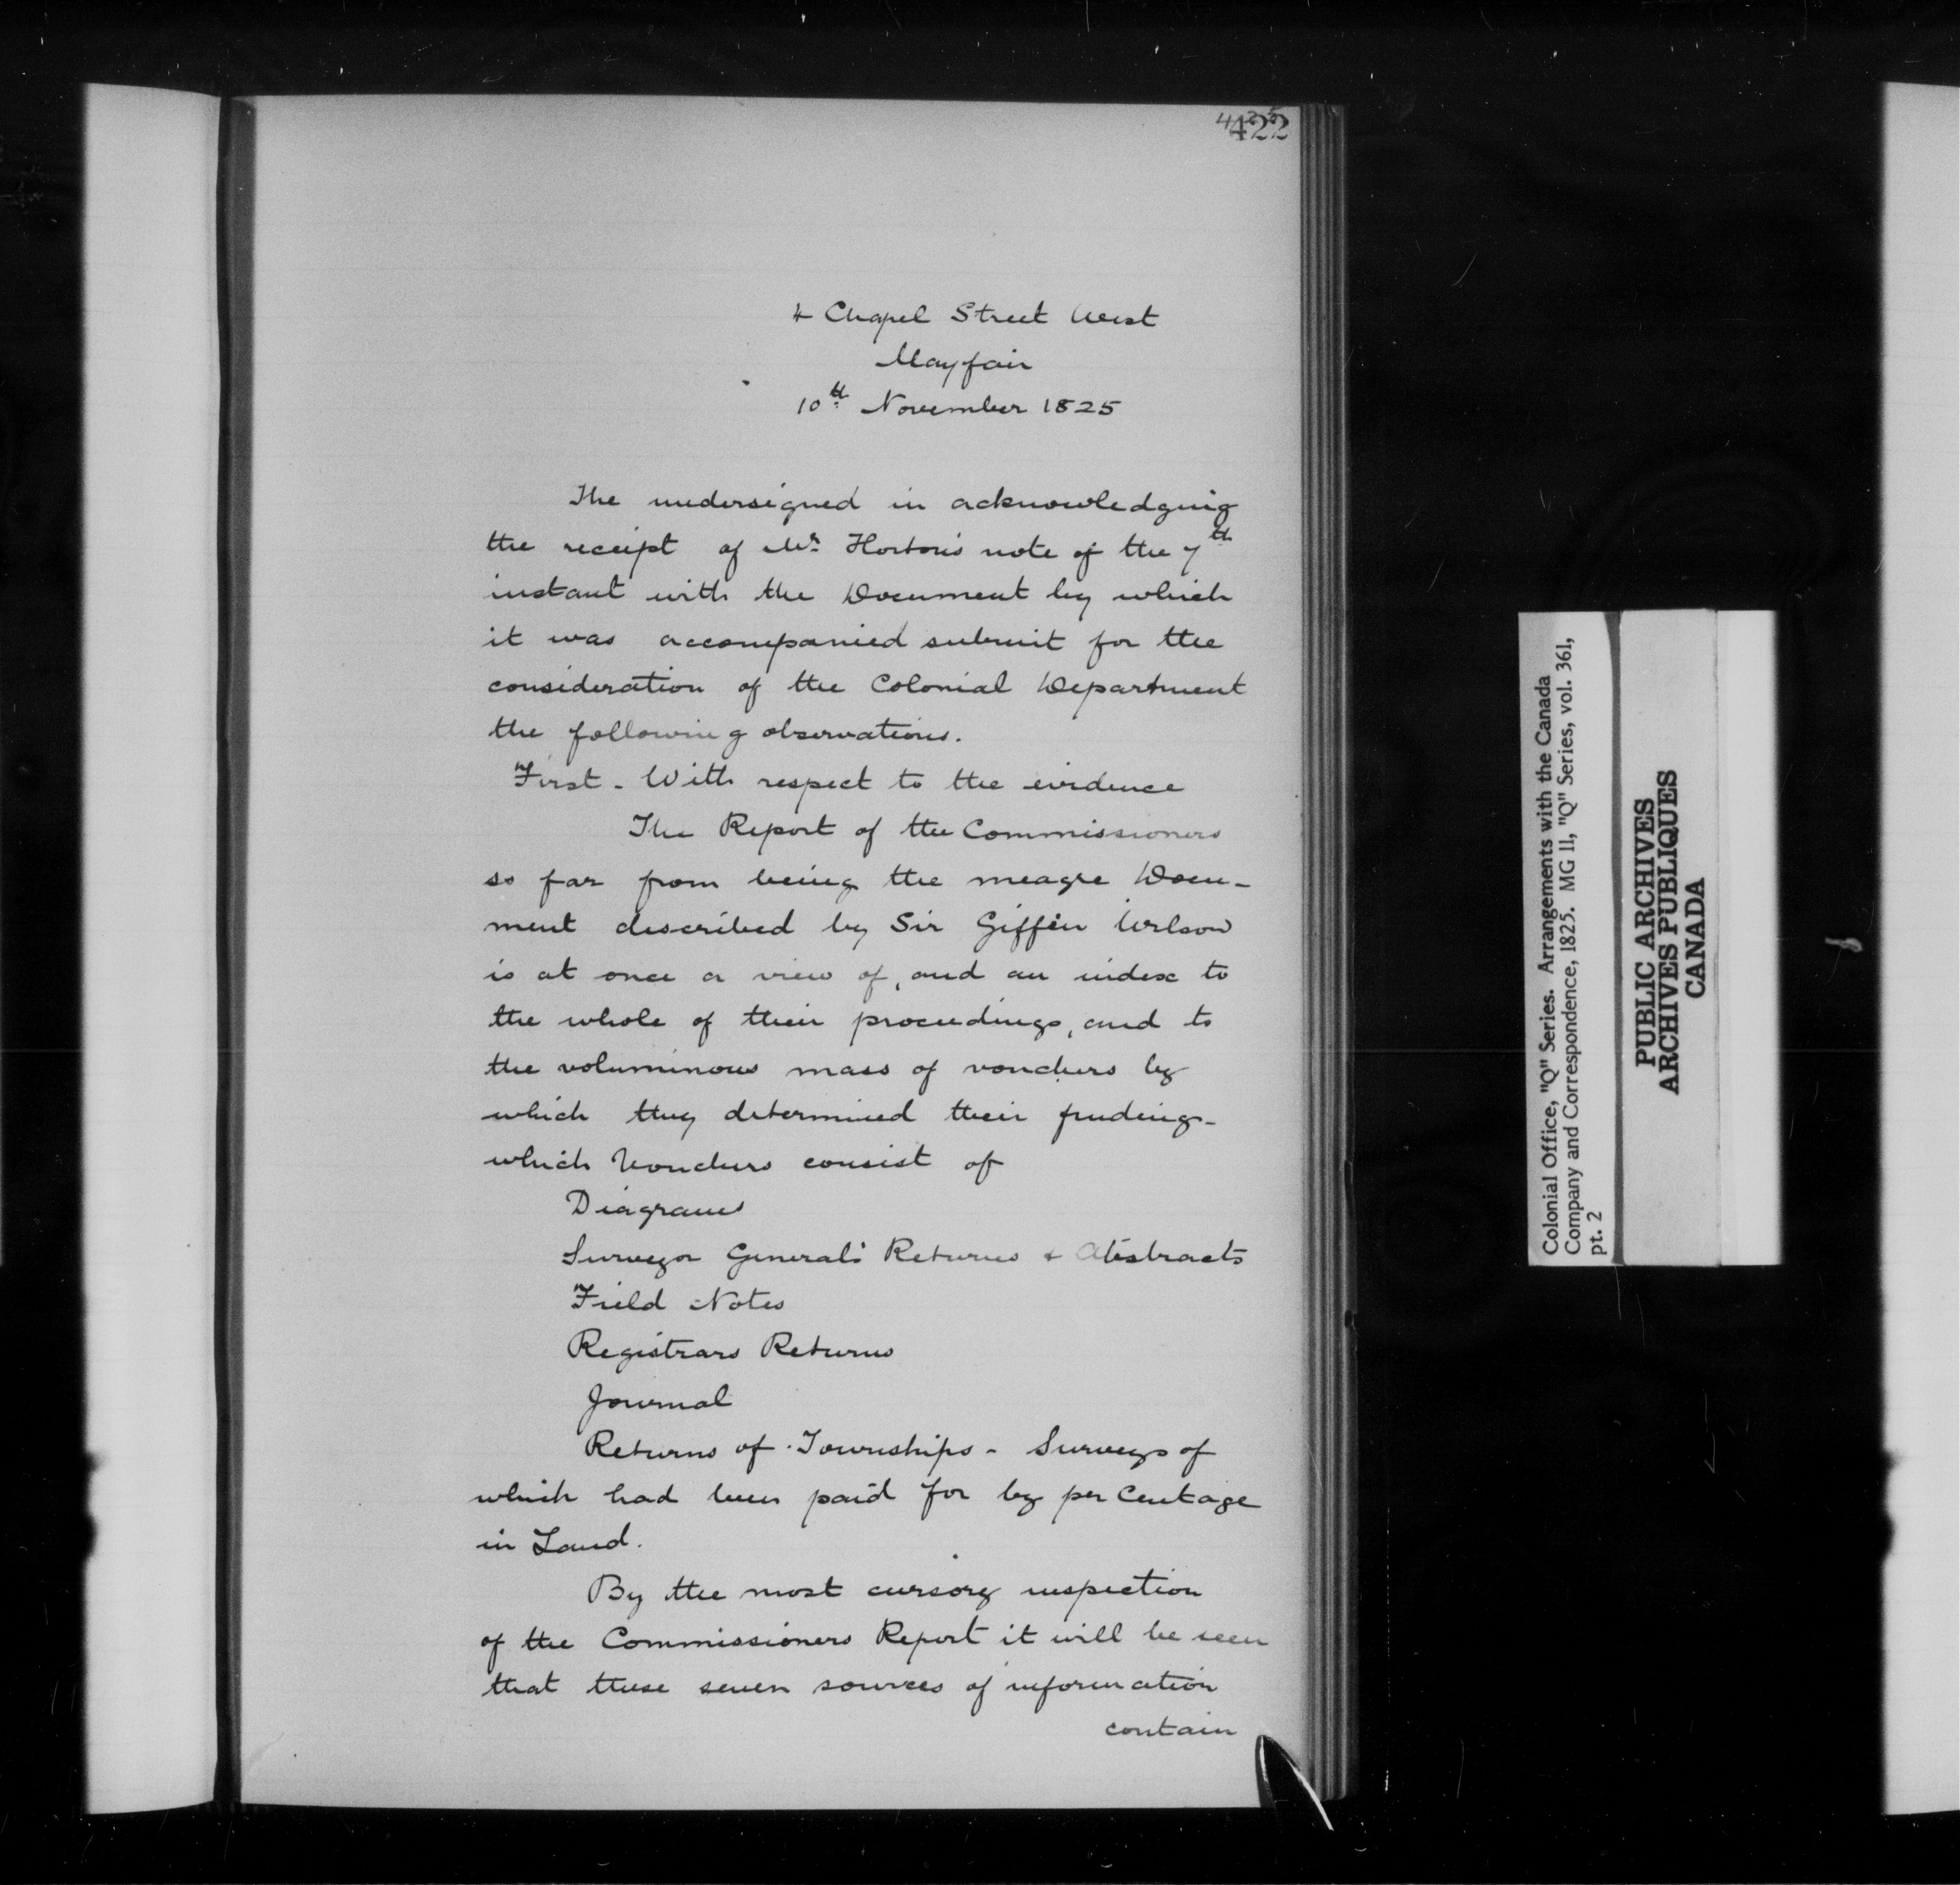 422
4 Chapel Street West
Mayfair
10th November 1825
The undersigned in acknowledging
the receipt of Mr. Horton's note of the 7th
instant with the Document by which
it was accompanied submit for the
consideration of the Colonial Department
the following observations.
First - With respect to the evidence
The Report of the Commissioners
so far from being the meagre Docu-
ment described by Sir Giffin Wilson
is at once a view of, and an index to
the whole of their proceedings, and to
the voluminous mass of vouchers by
which they determined their findings -
which Vouchers consist of
Diagrams
Surveyor General's Returns & Abstracts
Field Notes
Registrars Returns
Journal
Returns of Townships - Surveys of
which had been paid for by per Centage
in Land.
By the most cursory inspection
of the Commissioners Report it will be seen
that these seven sources of information
contain
Colonial Office, "Q" Series. Arrangements with the Canada
Company and Correspondence, 1825. MG 11, "Q" Series, vol. 361,
pt. 2
PUBLIC ARCHIVES
ARCHIVES PUBLIQUES
CANADA